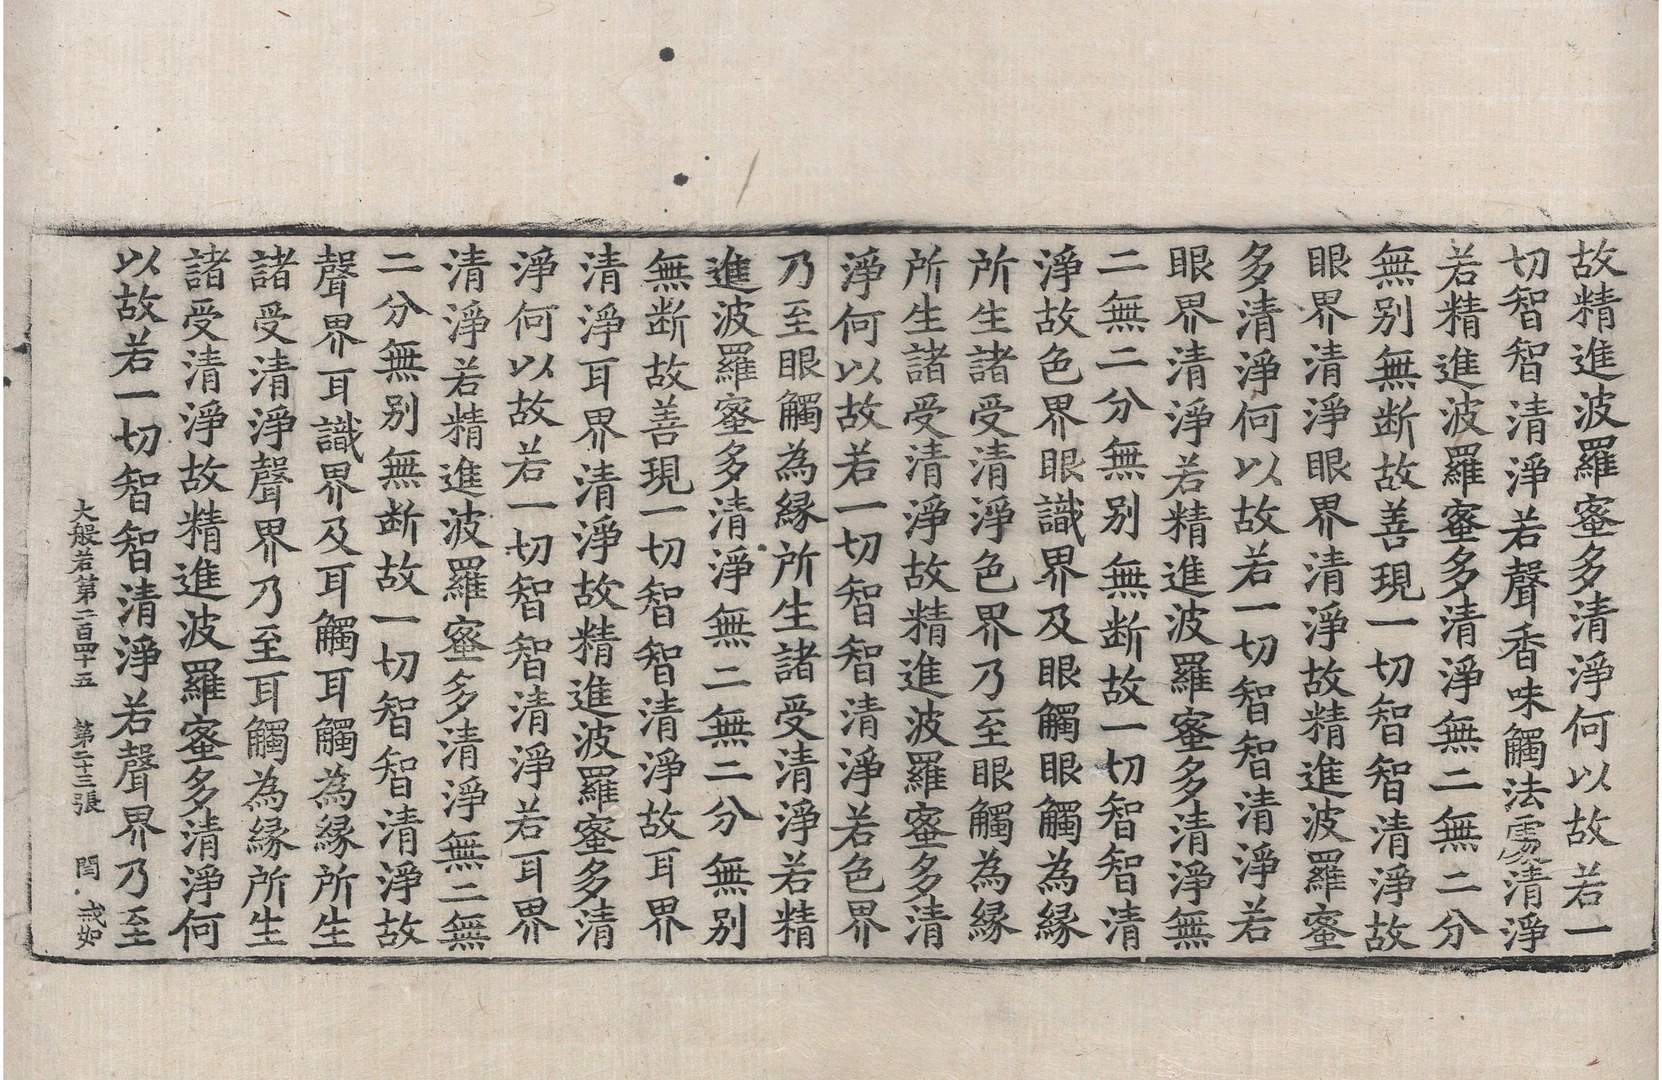 故精進波羅蜜多清淨何以故若一
切智智清淨若聲香味觸法處清淨
若精進波羅蜜多清淨無二無二分
無别無断故善現一切智智清淨故
眼界清淨眼界清淨故精進波羅蜜
多清淨何以故若一切智智清淨若
眼界清淨若精進波羅蜜多清淨無
二無二分無别無断故一切智智清
淨故色界眼識界及眼觸眼觸為縁
所生諸受清淨色界乃至眼觸為縁
所生諸受清淨故精進波羅蜜多清
淨何以故若一切智智清淨若色界
乃至眼觸為縁所生諸受清淨若精
進波羅蜜多清淨無二無二分無别
無断故善現一切智智清淨故耳界
清淨耳界清淨故精進波羅蜜多清
淨何以故若一切智智清淨若耳界
清淨若精進波羅蜜多清淨無二無
二分無别無断故一切智智清淨故
聲界耳識界及耳觸耳觸為縁所生
諸受清淨聲界乃至耳觸為縁所生
諸受清淨故精進波羅蜜多清淨何
以故若一切智智清淨若聲界乃至
大般若第二百四十五 第二十三張 戒如